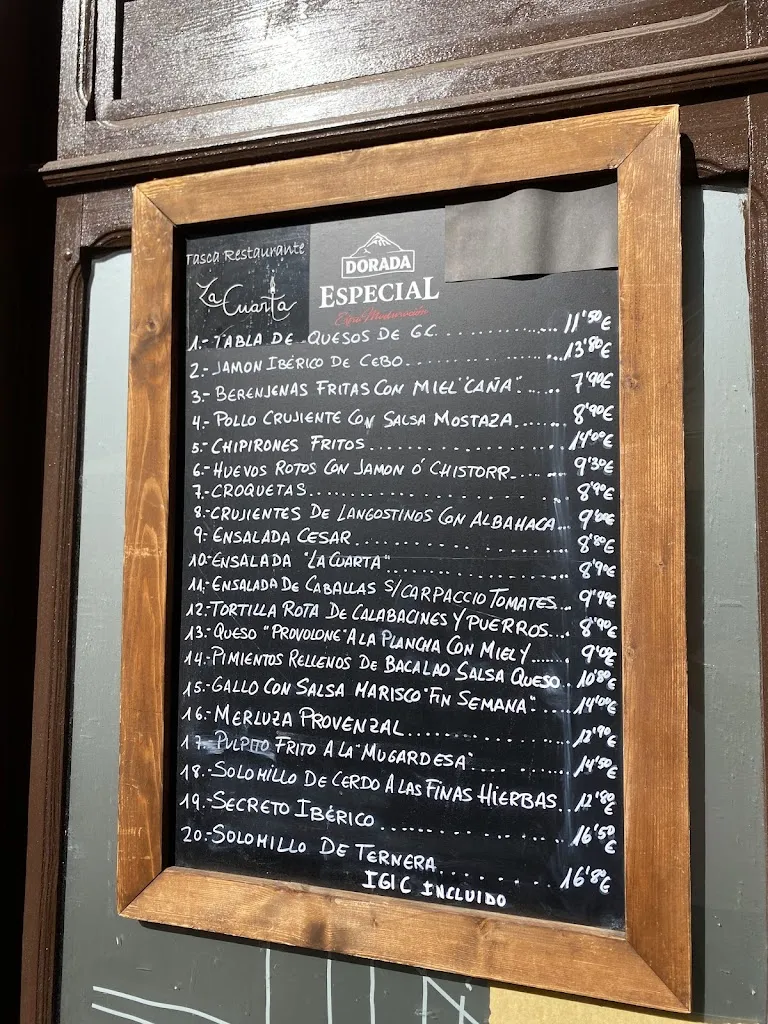 Tasca Restaurante
La Cuarta
DORADA
ESPECIAL
1.- TABLA DE QUESOS DE GC............ 11'50€
2.- JAMON IBÉRICO DE CEBO............ 13'80€
3.- BERENJENAS FRITAS CON MIEL "CAÑA"..... 7'90€
4.- POLLO CRUJIENTE CON SALSA MOSTAZA..... 8'90€
5.- CHIPIRONES FRITOS............ 14'00€
6.- HUEVOS ROTOS CON JAMON Ó CHISTORR..... 9'30€
7.- CROQUETAS............ 8'90€
8.- CRUJIENTES DE LANGOSTINOS CON ALBAHACA...
9.- ENSALADA CESAR............ 8'80€
10.- ENSALADA "LA CUARTA"............ 8'90€
11.- ENSALADA DE CABALLAS S/CARPACCIO TOMATES... 9'90€
12.- TORTILLA ROTA DE CALABACINES Y PUERROS... 8'90€
13.- QUESO "PROVOLONE" A LA PLANCHA CON MIEL Y...... 9'00€
14.- PIMIENTOS RELLENOS DE BACALAO SALSA QUESO. 10'80€
15.- GALLO CON SALSA MARISCO "FIN SEMANA"..... 14'00€
16.- MERLUZA PROVENZAL............ 12'90€
17.- PULPITO FRITO A LA "MUGARDESA"......... 14'50€
18.- SOLOMILLO DE CERDO A LAS FINAS HIERBAS... 12'80€
19.- SECRETO IBÉRICO............ 16'50€
20.- SOLOMILLO DE TERNERA............ 16'80€
IGIC INCLUIDO